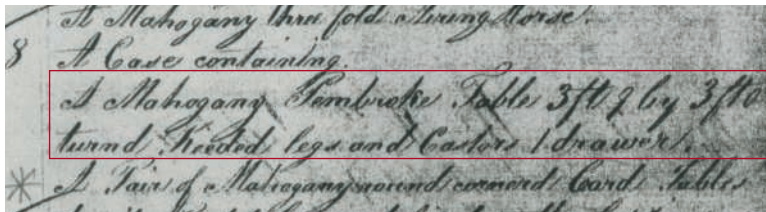 A Mahogany three fold Airing Horse.
8 A Case containing.
A Mahogany Pembroke Table 3ft 9 by 3ft 0
turnd Reeded legs and Castors 1 drawer.
A Pair of Mahogany round cornerd Card Tables